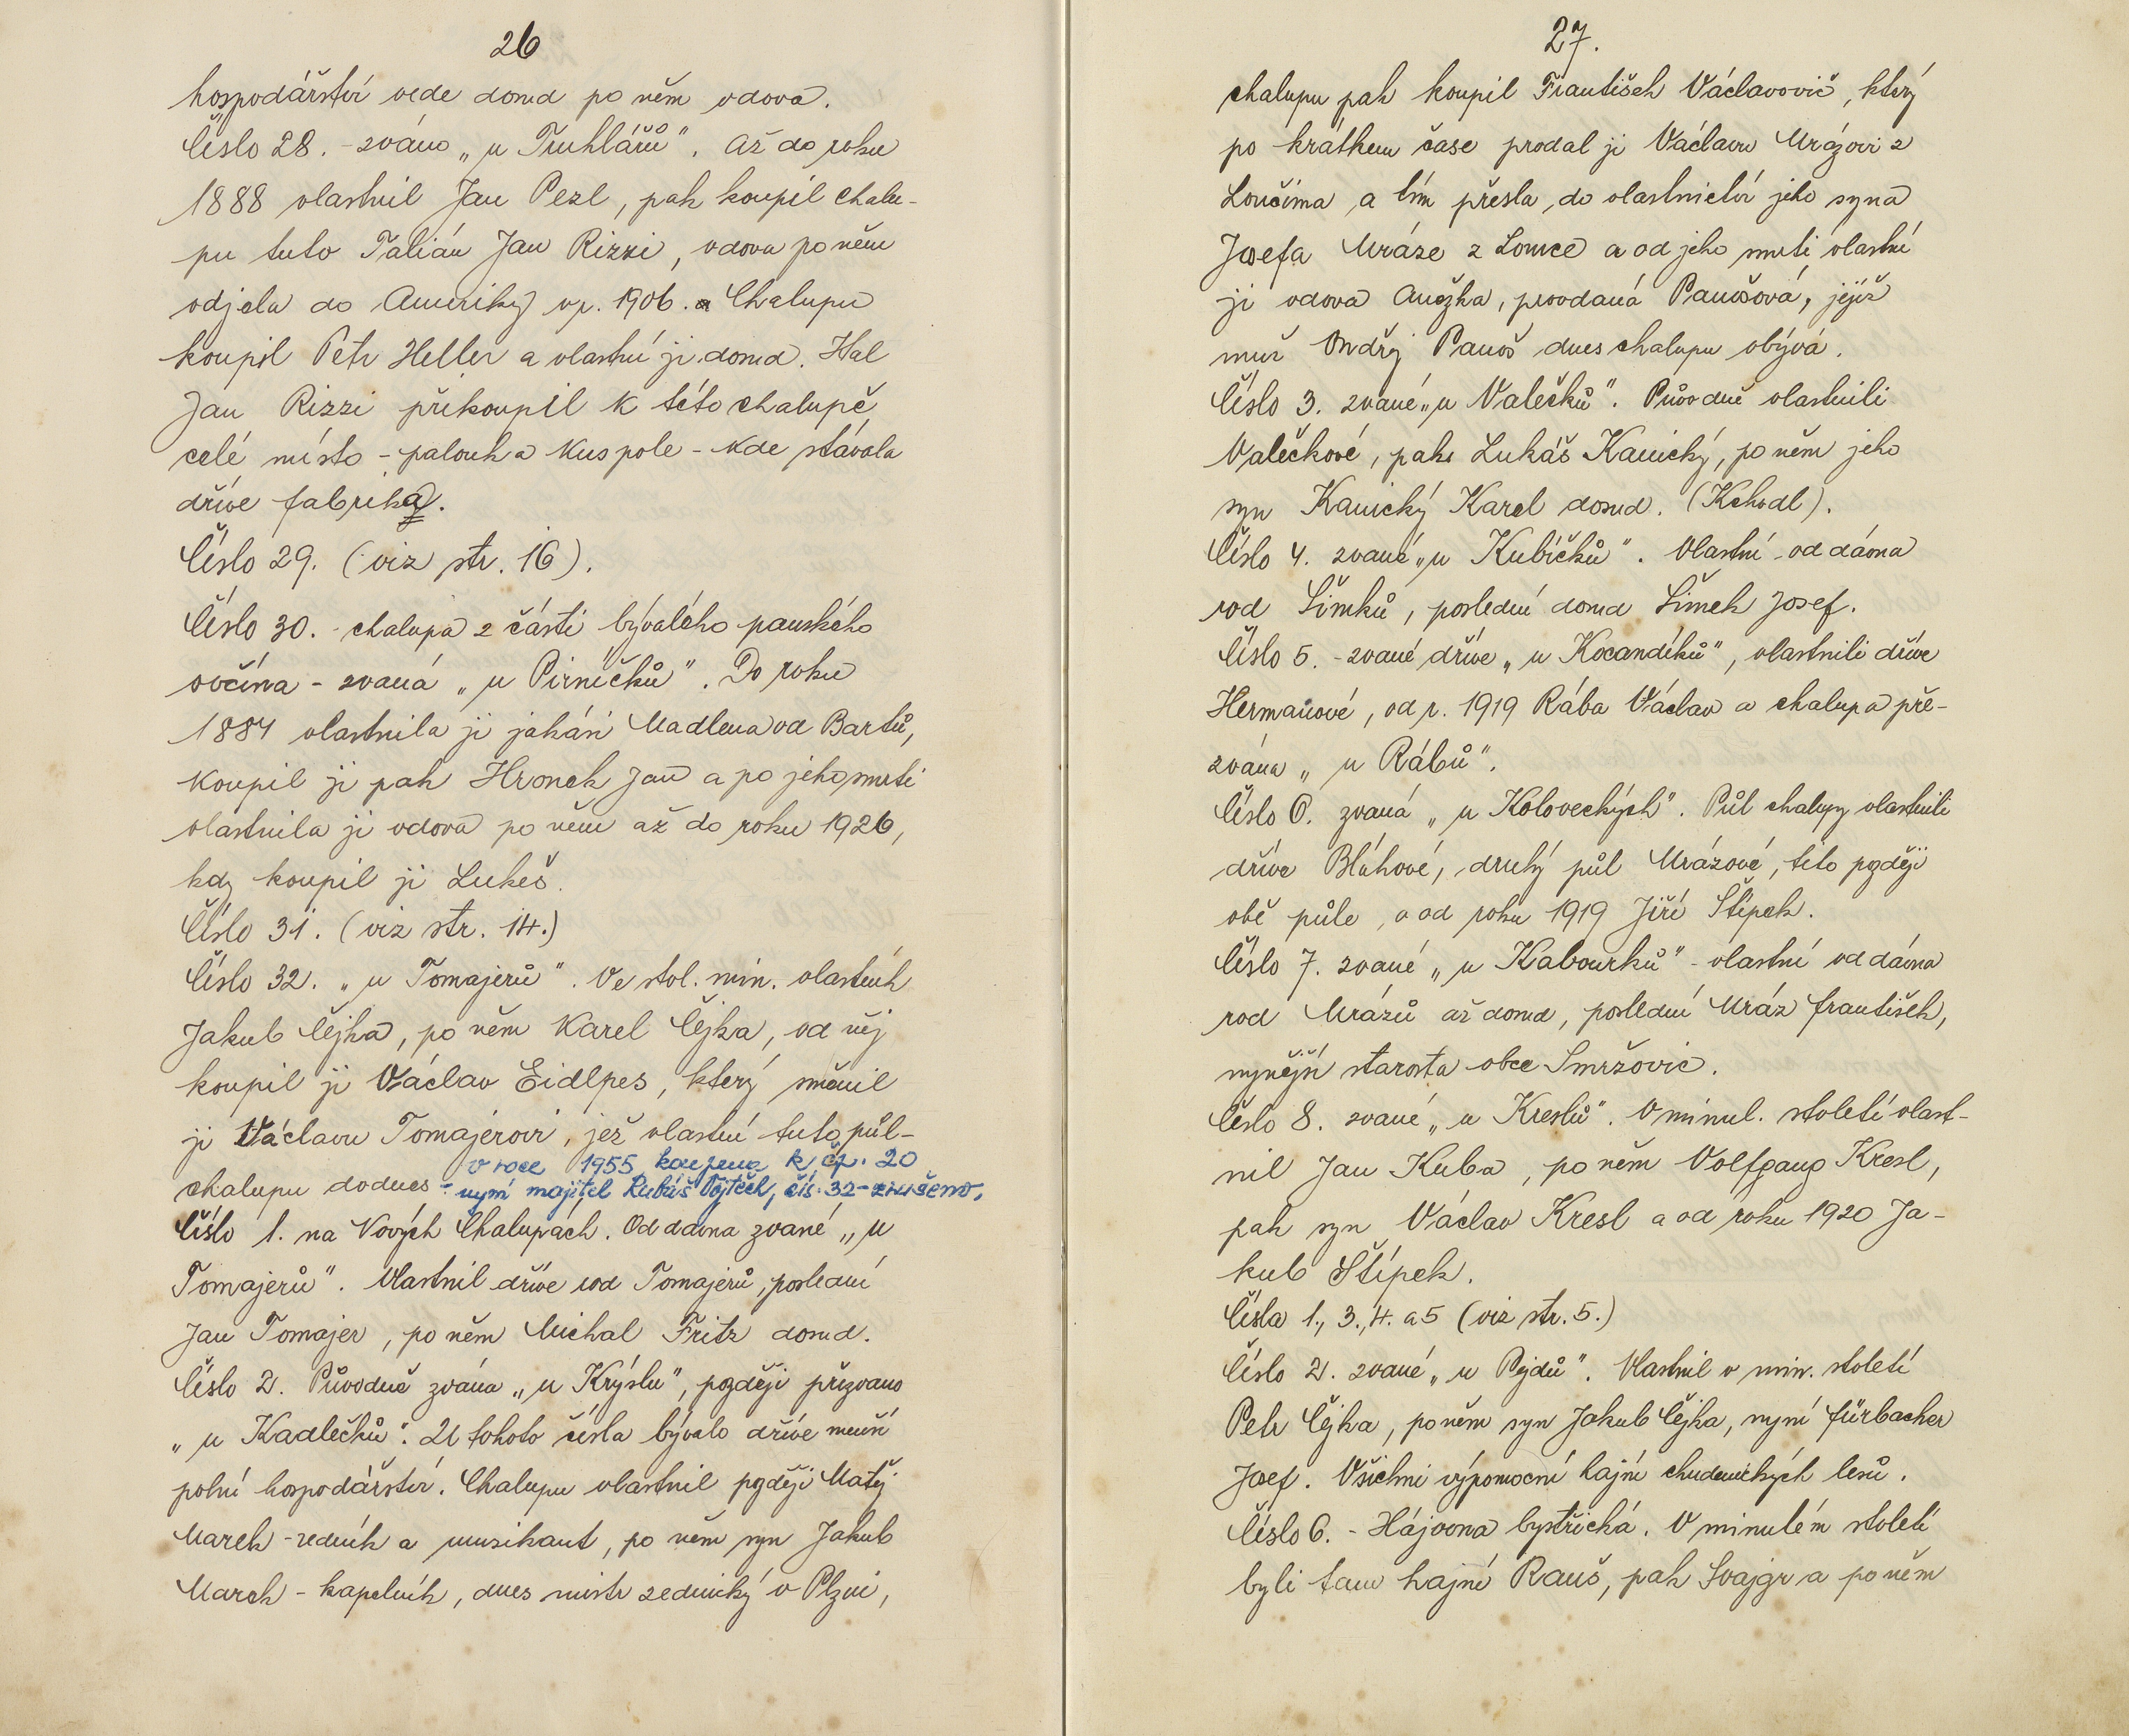 26
hospodářství vede dosud po něm vdova.
Číslo 28. - zváno „u Truhlářů". Až do roku
1888 vlastnil Jan Pezl, pak koupil chalu-
pu tuto Talián Jan Rizzi, vdova po něm
odjela do Ameriky v r. 1906. a Chalupu
koupil Petr Heller a vlastní ji dosud. Hal
Jan Rizzi přikoupil k této chalupě
celé místo - palouk a kus pole - kde stávala
dříve fabrika.
Číslo 29. (viz str. 16).
Číslo 30. - chalupa z části bývalého panského
ovčína - zvaná „u Pirníčků". Do roku
1884 vlastnila ji jakási Madlena od Bartů,
koupil ji pak Hronek Jan a po jeho smrti
vlastnila ji vdova po něm až do roku 1926,
kdy koupil ji Lukeš.
Číslo 31. (viz str. 14.)
Číslo 32. „u Tomajerů". Ve stol. min. vlastník
Jakub Čejka, po něm Karel Čejka, od něj
koupil ji Václav Eidlpes, který směnil
ji Václavu Tomajerovi, jež vlastní tuto půl-
v roce 1955 koupena k čp. 20
chalupu dodnes - nyní majitel Rubáš Vojtěch, čís. 32 - zrušeno.
Číslo 1. na Nových Chalupách. Od dávna zvané „u
Tomajerů". Vlastnil dříve rod Tomajerů, poslední
Jan Tomajer, po něm Michal Fritz dosud.
Číslo 2. Původně zvána „u Krýslu", později přezváno
„u Kadlečků". U tohoto čísla bývalo dříve menší
polní hospodářství. Chalupu vlastnil později Matěj
Marek - zedník a muzikant, po něm syn Jakub
Marek - kapelník, dnes mistr zednický v Plzni,
27.
chalupu pak koupil František Václavovič, který
po krátkem čase prodal ji Václavu Mrázovi z
Loučima a tím přešla do vlastnictví jeho syna
Josefa Mráze z Lomce a od jeho smrti vlastní
ji vdova Anežka, provdaná Panošová, jejíž
muž Ondřej Panoš dnes chalupu obývá.
Číslo 3. zvané „u Valečků". Původně vlastnili
Valečkové, pak Lukáš Kanický, po něm jeho
syn Kanický Karel dosud. (Kchodl).
Číslo 4. zvané „u Kubíčků". Vlastní od dávna
rod Šimků, poslední dosud Šimek Josef.
Číslo 5. - zvané dříve „u Kocandíků", vlastnili dříve
Hermanové, od r. 1919 Rába Václav a chalupa pře-
zvána „u Rábů".
Číslo 6. zvaná „u Koloveckých". Půl chalupy vlastnili
dříve Bláhové, druhý půl Mrázové, tito později
obě půle, a od roku 1919 Jiří Štípek.
Číslo 7. zvané „u Kabourků" - vlastní od dávna
rod Mrázů až dosud, poslední Mráz František,
nynější starosta obce Smržovic.
Číslo 8. zvané „u Kreslů". V minul. století vlast-
nil Jan Kuba, po něm Volfgang Kresl,
pak syn Václav Kresl a od roku 1920 Ja-
kub Štípek.
Čísla 1., 3., 4. a 5 (viz str. 5.)
Číslo 2. zvané „u Pejdů". Vlastnil v min. století
Petr Čejka, po něm syn Jakub Čejka, nyní Fürbacher
Josef. Všichni výpomocní hajní chudenických lesů.
Číslo 6. - Hájovna bystřická. V minulém století
byli tam hajní Rauš, pak Svajgr a po něm